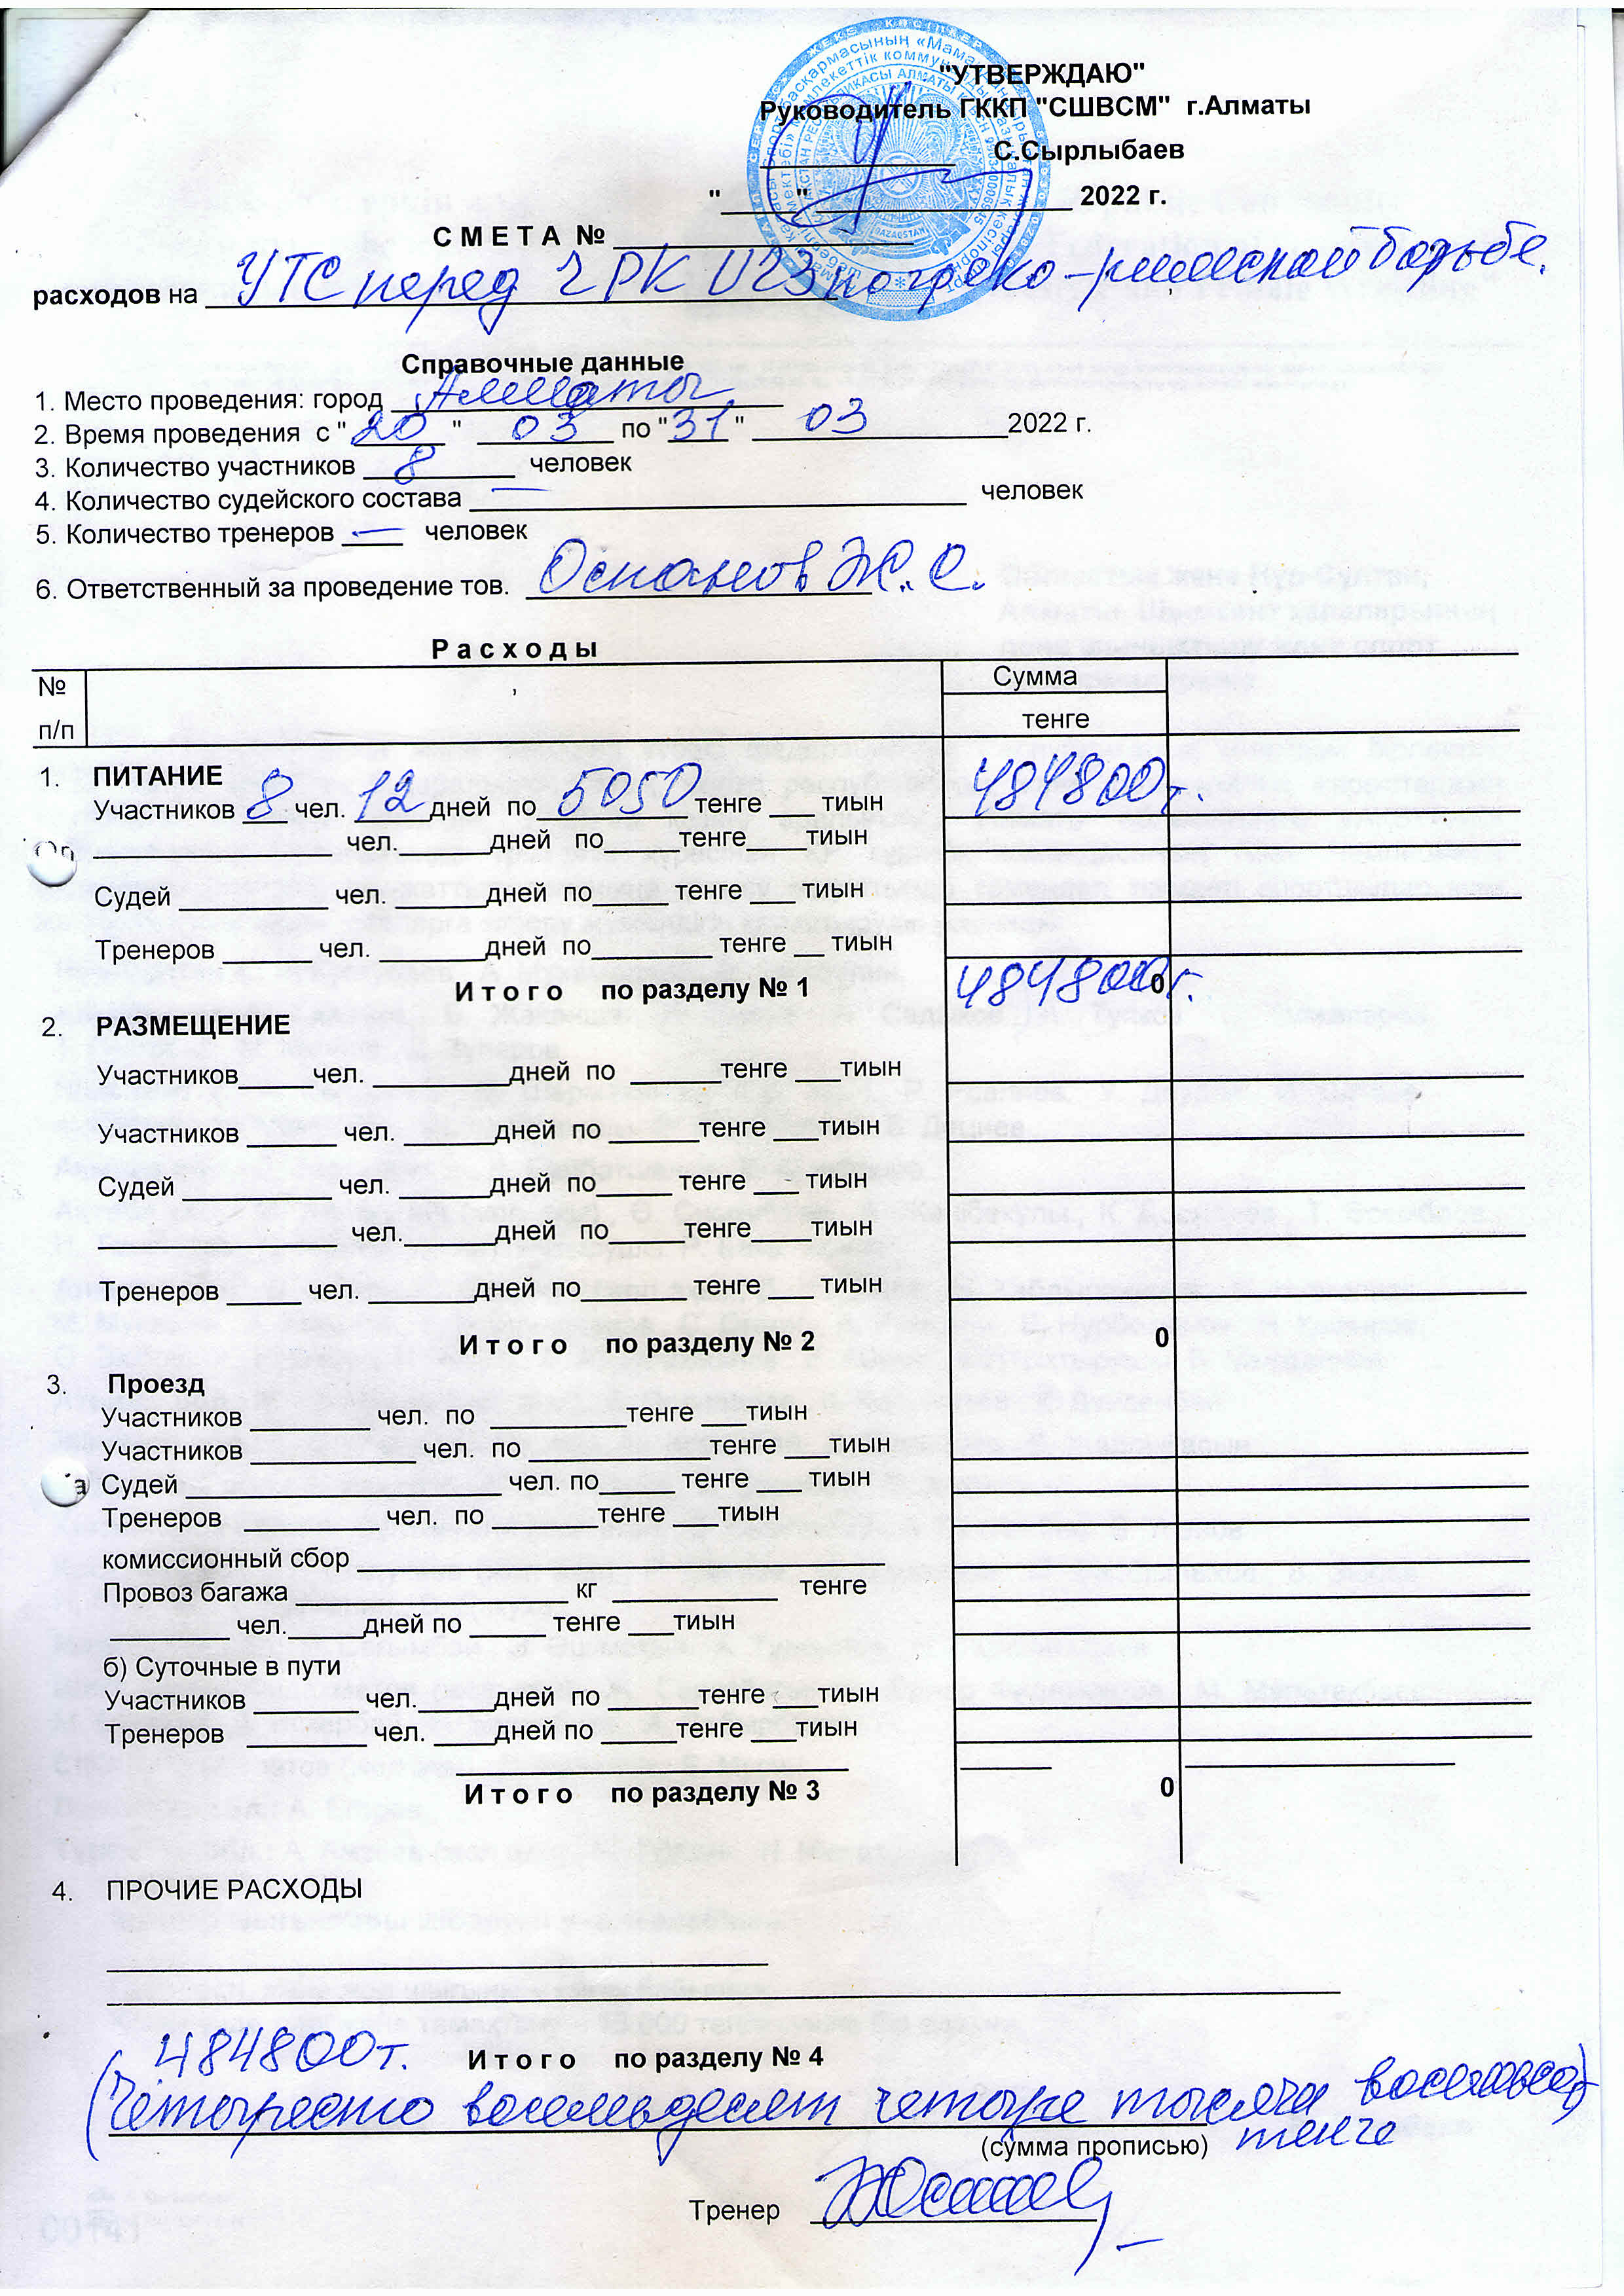 "УТВЕРЖДАЮ"
Руководитель ГККП "СШВСМ" г.Алматы
______________ С.Сырлыбаев
"_____" _________________ 2022 г.
С М Е Т А № ____________________
расходов на УТС перед ЧРК U23 по греко-римской борьбе.
Справочные данные
1. Место проведения: город Алматы
2. Время проведения с "20" 03 по "31" 03 2022 г.
3. Количество участников 8 человек
4. Количество судейского состава — человек
5. Количество тренеров — человек
6. Ответственный за проведение тов. Оспанов Ж. С.
Р а с х о д ы
№ п/п Сумма
тенге
1. ПИТАНИЕ
Участников 8 чел. 12 дней по 5050 тенге ___ тиын 484800т.
________________ чел.______дней по_____тенге____тиын
Судей __________ чел. ______дней по_____ тенге ___ тиын
Тренеров ______ чел. _______дней по________ тенге __ тиын
И т о г о по разделу № 1 484800т. 0
2. РАЗМЕЩЕНИЕ
Участников_____чел. _________дней по ______тенге ___тиын
Участников ______ чел. ______дней по ______тенге ___тиын
Судей __________ чел. ______дней по_____ тенге ___ тиын
________________ чел.______дней по_____тенге____тиын
Тренеров _____ чел. _______дней по_______ тенге ___ тиын
И т о г о по разделу № 2 0
3. Проезд
Участников ________ чел. по _________тенге ___тиын
Участников ___________ чел. по ____________тенге ___тиын
Судей _____________________ чел. по_____ тенге ___ тиын
Тренеров _________ чел. по _______тенге ___тиын
комиссионный сбор ___________________________________
Провоз багажа __________________ кг ___________ тенге
________ чел._____дней по _____ тенге ___тиын
б) Суточные в пути
Участников _______ чел._____дней по ______тенге ___тиын
Тренеров ________ чел. ____дней по _____тенге ___тиын
И т о г о по разделу № 3 0
4. ПРОЧИЕ РАСХОДЫ
484800т. И т о г о по разделу № 4
(Четыреста восемьдесят четыре тысячи восемьсот)
(сумма прописью) тенге
Тренер